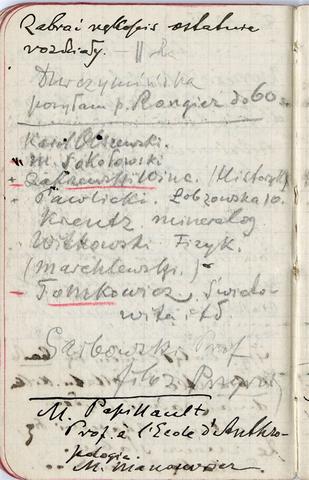 Zabrać rękopis ostatnie
rozdziały. — II
Durczymińska
pożyłam p. Rangier do 60
Karol Olszewski.
M. Sokołowski
Zakrzewski Winc. (Historyk)
Pawlicki. Łobzowska 10.
Kreutz mineralog
Witkowski Fizyk.
(Marchlewski.)
Świato-
wita
Garbowski Prof
filoz Przyr
M. Papillault
Prof. a l'Ecole d'Anthro-
pologie.
M. Manouvrier